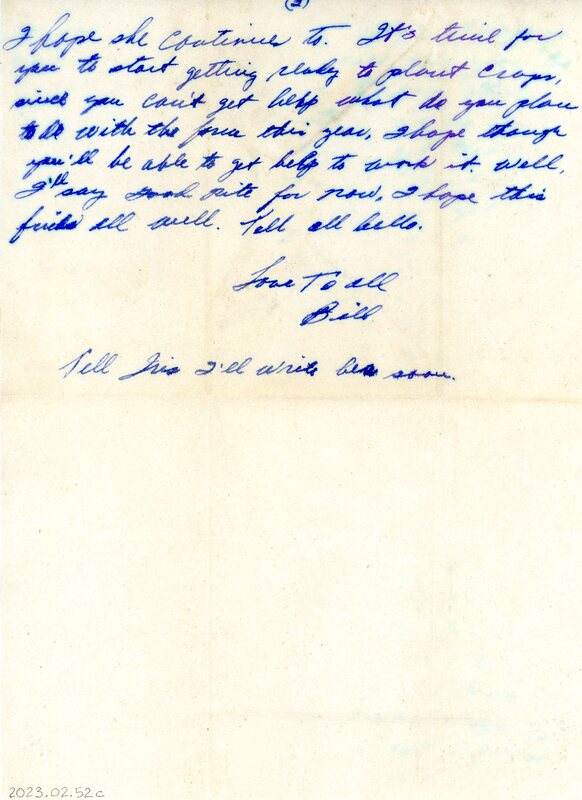 (2)
I hope she continues to. It's time for
you to start getting ready to plant crops,
since you can't get help what do you plan
to do with the farm this year, I hope though
you'll be able to get help to work it. Well,
I'll say nite for now, I hope this
finds all well. Tell all hello.
Love To all
Bill
Tell Iris I'll write her soon.
2023.02.52c